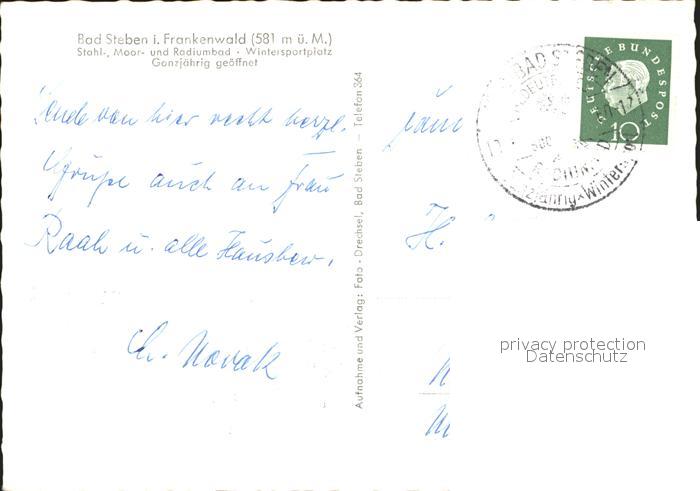 Bad Steben i. Frankenwald (581 m ü. M.)
Stahl-, Moor- und Radiumbad · Wintersportplatz
Ganzjährig geöffnet
Sende von hier recht herzl.
Grüße auch an Frau
Raab u. alle Hausbew.
Ch. Novak
Aufnahme und Verlag: Foto - Drechsel, Bad Steben – Telefon 364
H.
DEUTSCHE BUNDESPOST
10
BAD STEBEN
privacy protection
Datenschutz